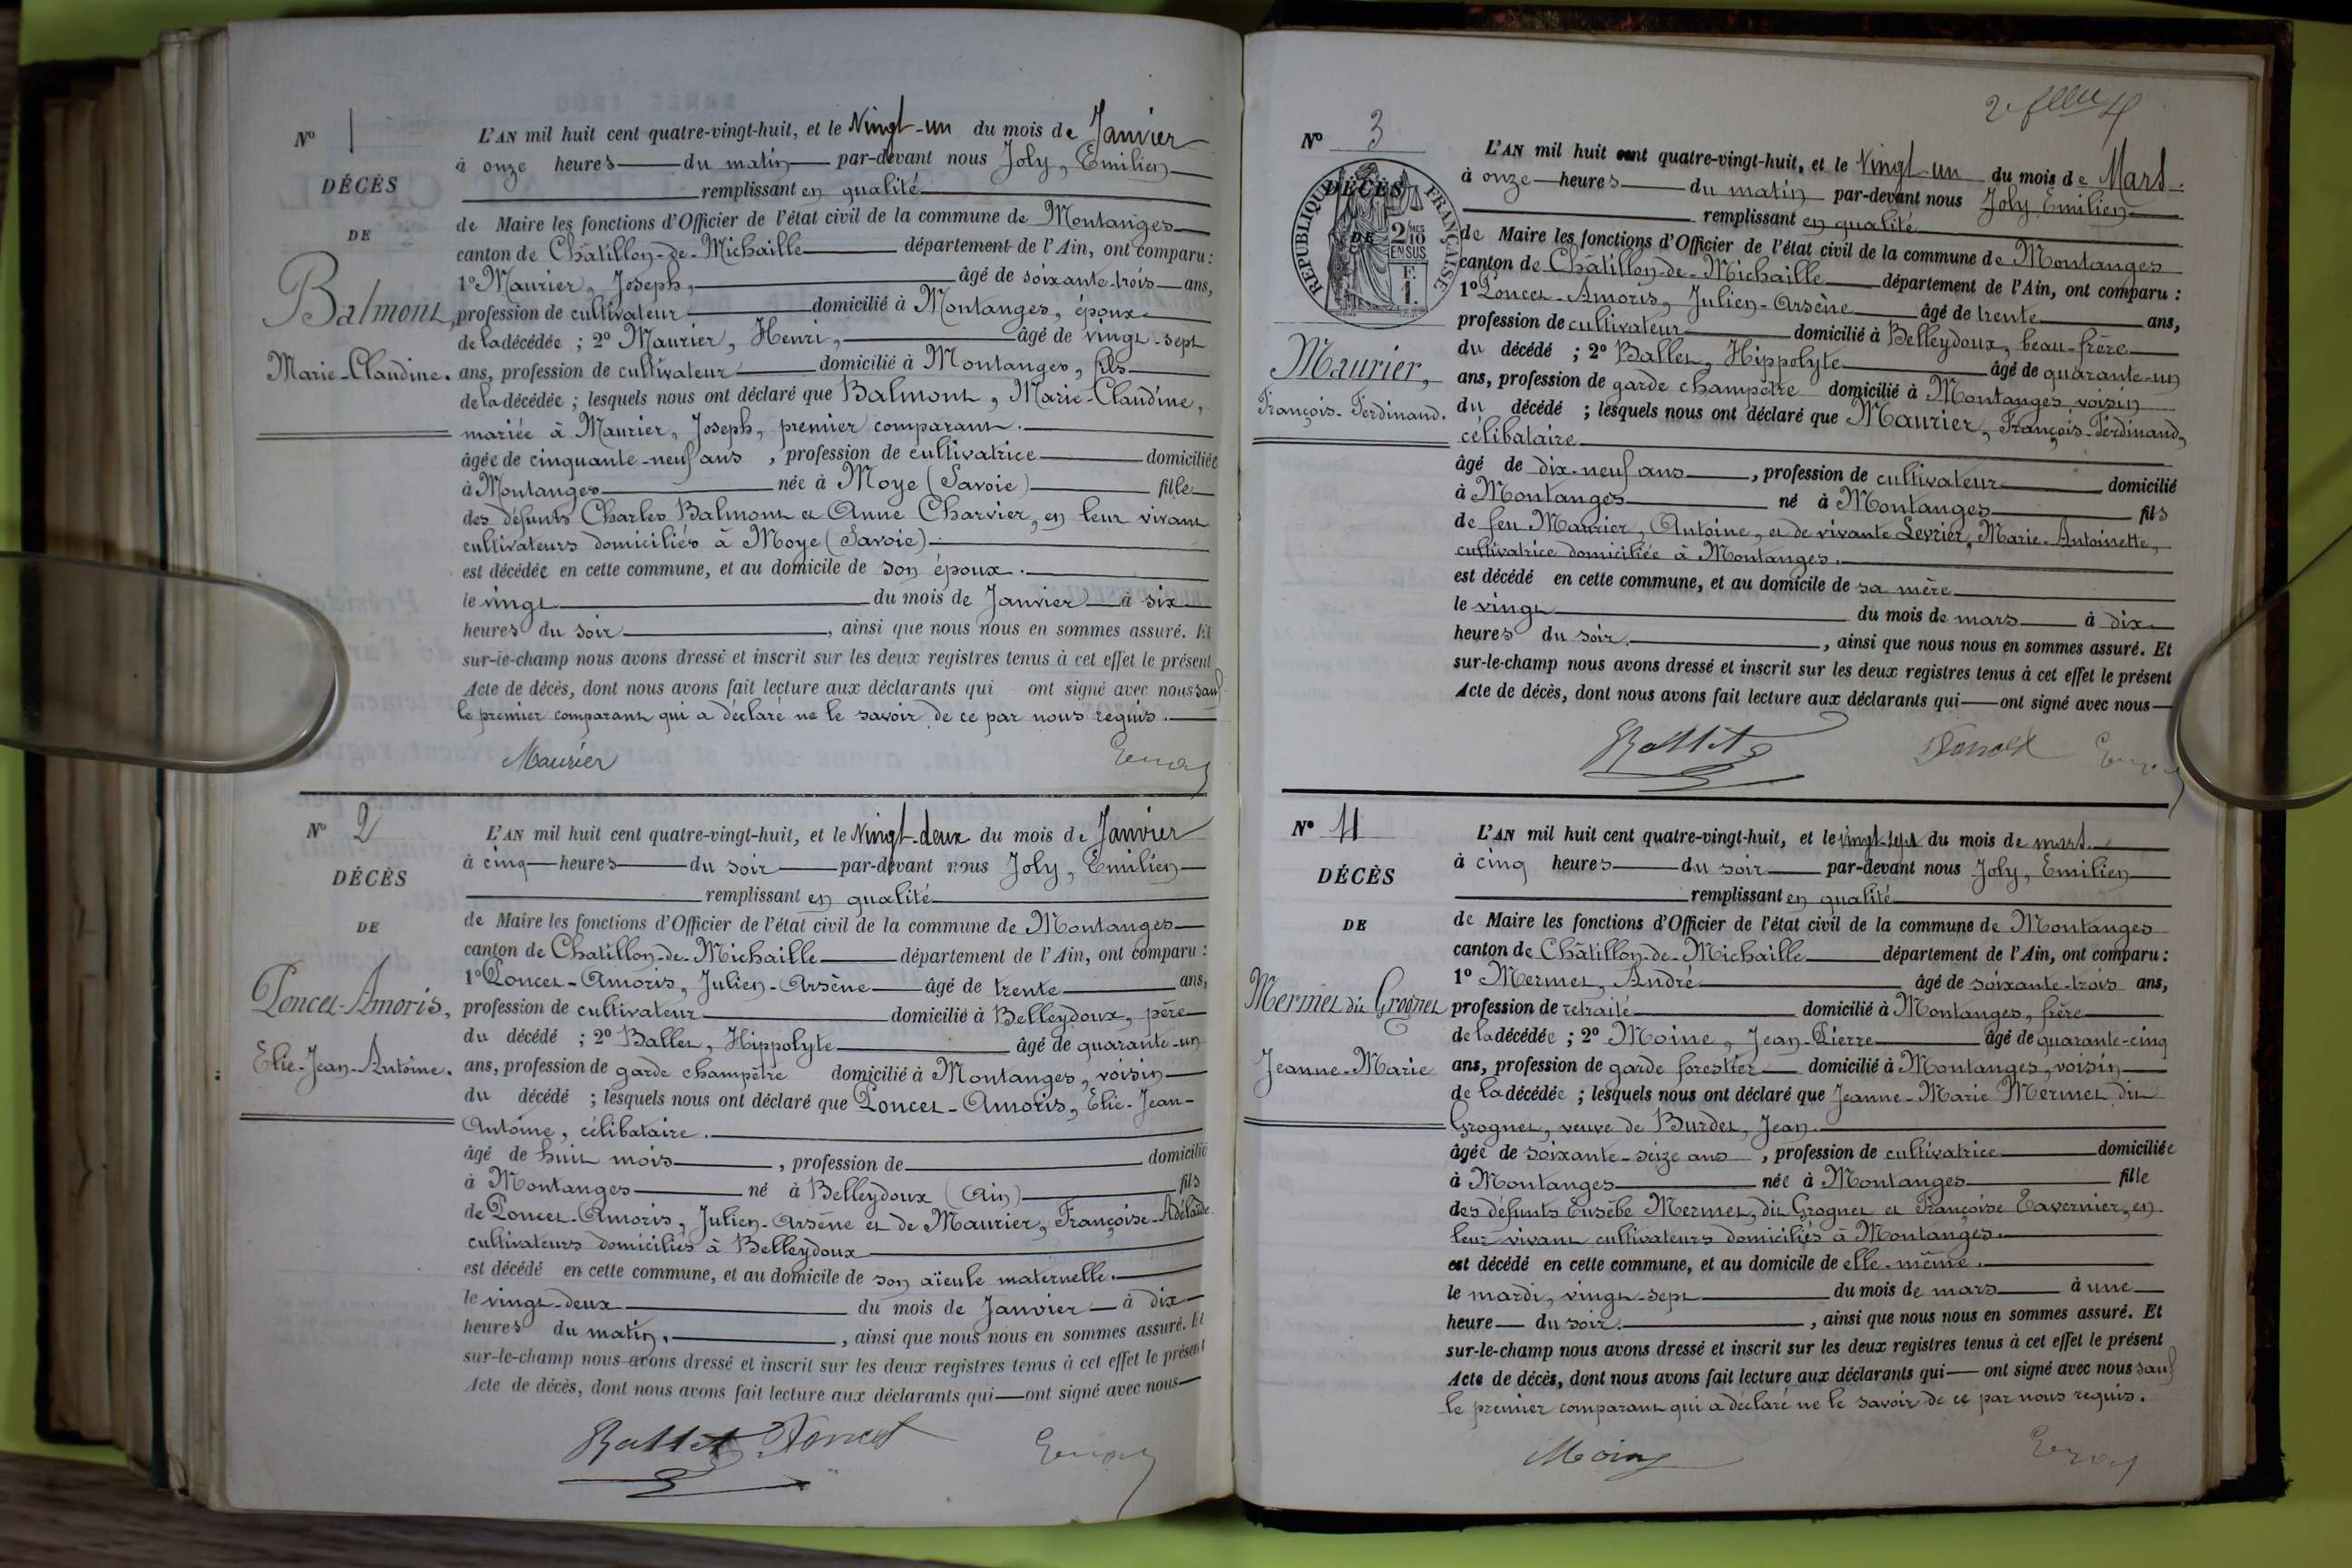 Nº 1
DÉCÈS
DE
Balmont,
Marie-Claudine.
L'AN mil huit cent quatre-vingt-huit, et le Vingt-un du mois de Janvier
à onze heures du matin par-devant nous Joly, Emilien
remplissant en qualité
de Maire les fonctions d'Officier de l'état civil de la commune de Montanges
canton de Châtillon-de-Michaille département de l'Ain, ont comparu :
1º Maurier, Joseph, âgé de soixante-trois ans,
profession de cultivateur domicilié à Montanges, époux
de la décédée ; 2º Maurier, Henri, âgé de vingt-sept
ans, profession de cultivateur domicilié à Montanges, fils
de la décédée ; lesquels nous ont déclaré que Balmont, Marie-Claudine,
mariée à Maurier, Joseph, premier comparant.
âgée de cinquante-neuf ans, profession de cultivatrice domiciliée
à Montanges née à Moye (Savoie) fille
des défunts Charles Balmont et Anne Charvier, en leur vivant
cultivateurs domiciliés à Moye (Savoie)
est décédée en cette commune, et au domicile de son époux.
le vingt du mois de Janvier à six
heures du soir, ainsi que nous nous en sommes assuré. Et
sur-le-champ nous avons dressé et inscrit sur les deux registres tenus à cet effet le présent
Acte de décès, dont nous avons fait lecture aux déclarants qui ont signé avec nous sauf
le premier comparant qui a déclaré ne le savoir de ce par nous requis.
Maurier
Nº 2
DÉCÈS
DE
Poncet-Amoris,
Elie-Jean-Antoine.
L'AN mil huit cent quatre-vingt-huit, et le Vingt-deux du mois de Janvier
à cinq heures du soir par-devant nous Joly, Emilien
remplissant en qualité
de Maire les fonctions d'Officier de l'état civil de la commune de Montanges
canton de Chatillon-de-Michaille département de l'Ain, ont comparu :
1º Poncet-Amoris, Julien-Arsène âgé de trente ans,
profession de cultivateur domicilié à Belleydoux, père
du décédé ; 2º Ballet, Hippolyte âgé de quarante-un
ans, profession de garde champêtre domicilié à Montanges, voisin
du décédé ; lesquels nous ont déclaré que Poncet-Amoris, Elie-Jean-
Antoine, célibataire.
âgé de huit mois, profession de domicilié
à Montanges né à Belleydoux (Ain) fils
de Poncet-Amoris, Julien-Arsène et de Maurier, Françoise-Adélaïde
cultivateurs domiciliés à Belleydoux
est décédé en cette commune, et au domicile de son aïeule maternelle.
le vingt-deux du mois de Janvier à dix
heures du matin, ainsi que nous nous en sommes assuré. Et
sur-le-champ nous avons dressé et inscrit sur les deux registres tenus à cet effet le présent
Acte de décès, dont nous avons fait lecture aux déclarants qui ont signé avec nous
Ballet Poncet
Nº 3
DÉCÈS
DE
RÉPUBLIQUE FRANÇAISE
2 MES
10
EN SUS
F.
1.
Maurier,
François-Ferdinand.
L'AN mil huit cent quatre-vingt-huit, et le Vingt-un du mois de Mars.
à onze heures du matin par-devant nous Joly Emilien
remplissant en qualité
de Maire les fonctions d'Officier de l'état civil de la commune de Montanges
canton de Châtillon-de-Michaille département de l'Ain, ont comparu :
1º Poncet-Amoris, Julien-Arsène âgé de trente ans,
profession de cultivateur domicilié à Belleydoux, beau-frère
du décédé ; 2º Ballet, Hippolyte âgé de quarante-un
ans, profession de garde champêtre domicilié à Montanges voisin
du décédé ; lesquels nous ont déclaré que Maurier, François-Ferdinand,
célibataire
âgé de dix-neuf ans, profession de cultivateur domicilié
à Montanges né à Montanges fils
de feu Maurier, Antoine, et de vivante Levrier, Marie-Antoinette,
cultivatrice domiciliée à Montanges.
est décédé en cette commune, et au domicile de sa mère
le vingt du mois de mars à dix
heures du soir., ainsi que nous nous en sommes assuré. Et
sur-le-champ nous avons dressé et inscrit sur les deux registres tenus à cet effet le présent
Acte de décès, dont nous avons fait lecture aux déclarants qui ont signé avec nous
Ballet Poncet
Nº 4
DÉCÈS
DE
Mermet dit Grognet
Jeanne-Marie
L'AN mil huit cent quatre-vingt-huit, et le vingt-sept du mois de mars.
à cinq heures du soir par-devant nous Joly, Emilien
remplissant en qualité
de Maire les fonctions d'Officier de l'état civil de la commune de Montanges
canton de Châtillon-de-Michaille département de l'Ain, ont comparu :
1º Mermet, André âgé de soixante-trois ans,
profession de retraité domicilié à Montanges, frère
de la décédée ; 2º Moine, Jean-Pierre âgé de quarante-cinq
ans, profession de garde forestier domicilié à Montanges, voisin
de la décédée ; lesquels nous ont déclaré que Jeanne-Marie Mermet dit
Grognet, veuve de Burdet, Jean.
âgée de soixante-seize ans, profession de cultivatrice domiciliée
à Montanges née à Montanges fille
des défunts Eusèbe Mermet, dit Grognet et Françoise Tavernier, en
leur vivant cultivateurs domiciliés à Montanges.
est décédé en cette commune, et au domicile de elle-même.
le mardi, vingt-sept du mois de mars à une
heure du soir., ainsi que nous nous en sommes assuré. Et
sur-le-champ nous avons dressé et inscrit sur les deux registres tenus à cet effet le présent
Acte de décès, dont nous avons fait lecture aux déclarants qui ont signé avec nous sauf
le premier comparant qui a déclaré ne le savoir de ce par nous requis.
Moine